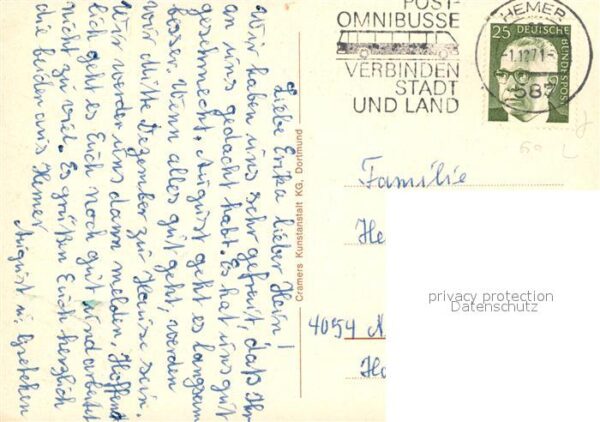 Liebe Erika lieber Hein!
Wir haben uns sehr gefreut, daß Ihr
an uns gedacht habt. Es hat uns gut
geschmeckt. August geht es langsam
besser. Wenn alles gut geht, werden
wir Mitte Dezember zu Hause sein.
Wir werden uns dann melden. Hoffent
lich geht es Euch noch gut und arbeitet
nicht zu viel. Es grüßen Euch herzlich
die beiden aus Hemer
August u. Gretchen
Cramers Kunstanstalt KG, Dortmund
POST-
OMNIBUSSE
VERBINDEN
STADT
UND LAND
HEMER
-1.12.71-
587
25
DEUTSCHE
BUNDESPOST
60
Familie
He
4054 N
Ho
privacy protection
Datenschutz